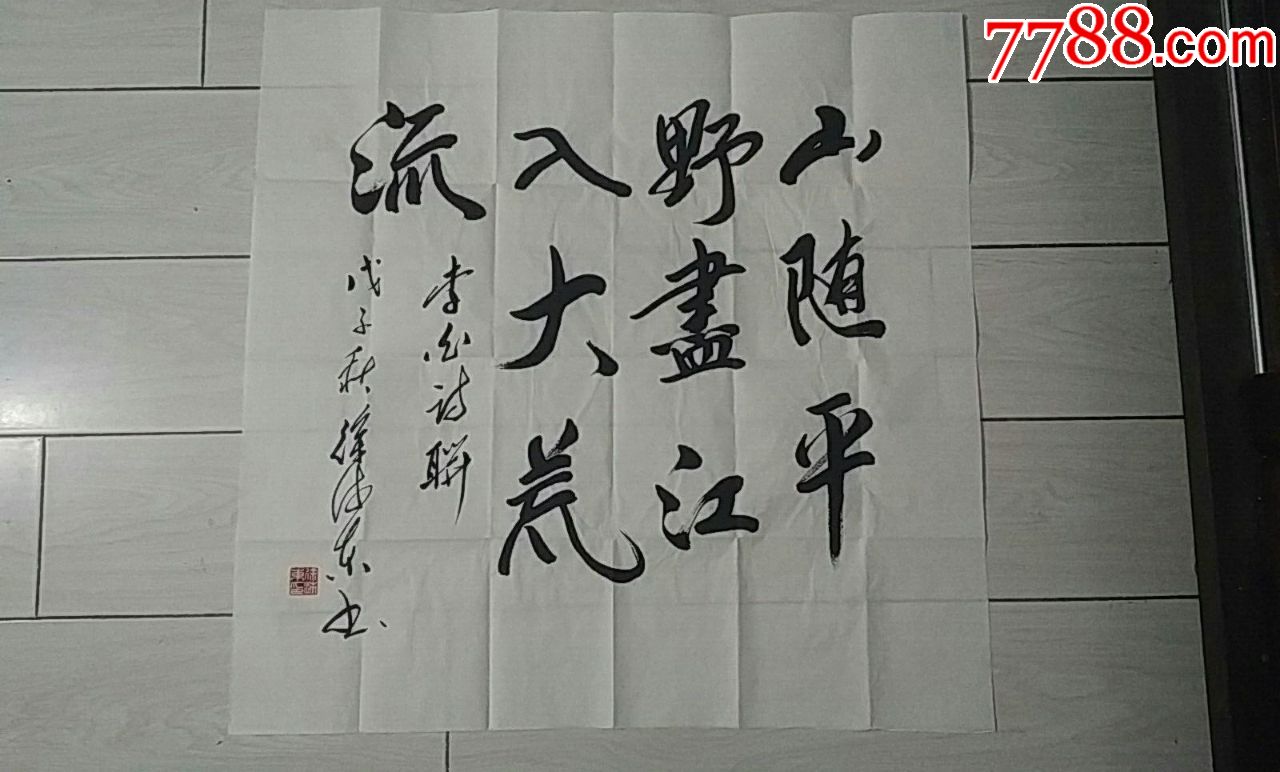 山随平
野盡江
入大荒
流
李白诗联
戊子秋 徐沛东书
7788.com